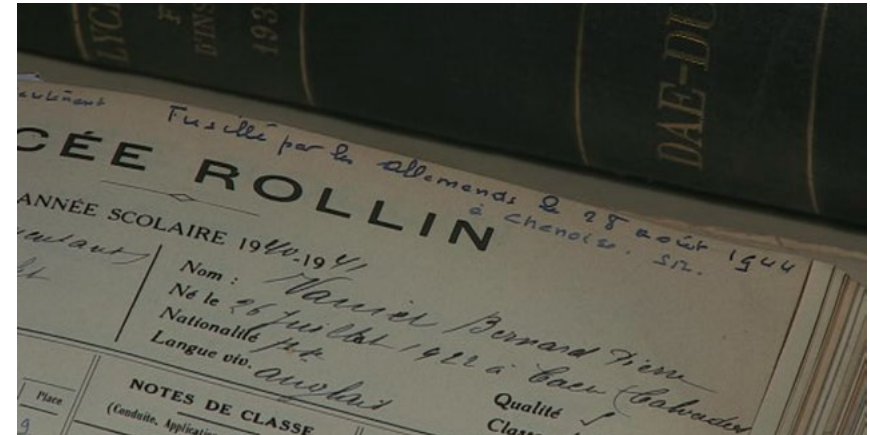 LYC
F
D'INS
193
DAE-DU
Fusillé par les allemands le 28 août 1944
à Chenoise. SM.
CÉE ROLLIN
ANNÉE SCOLAIRE 1940-1941
Nom : Bernard Pierre
Né le 26 juillet 1922 à Caen (Calvados
Nationalité
Langue viv. anglais
Qualité
Class
Place
NOTES DE CLASSE
(Conduite, Applicatio
9